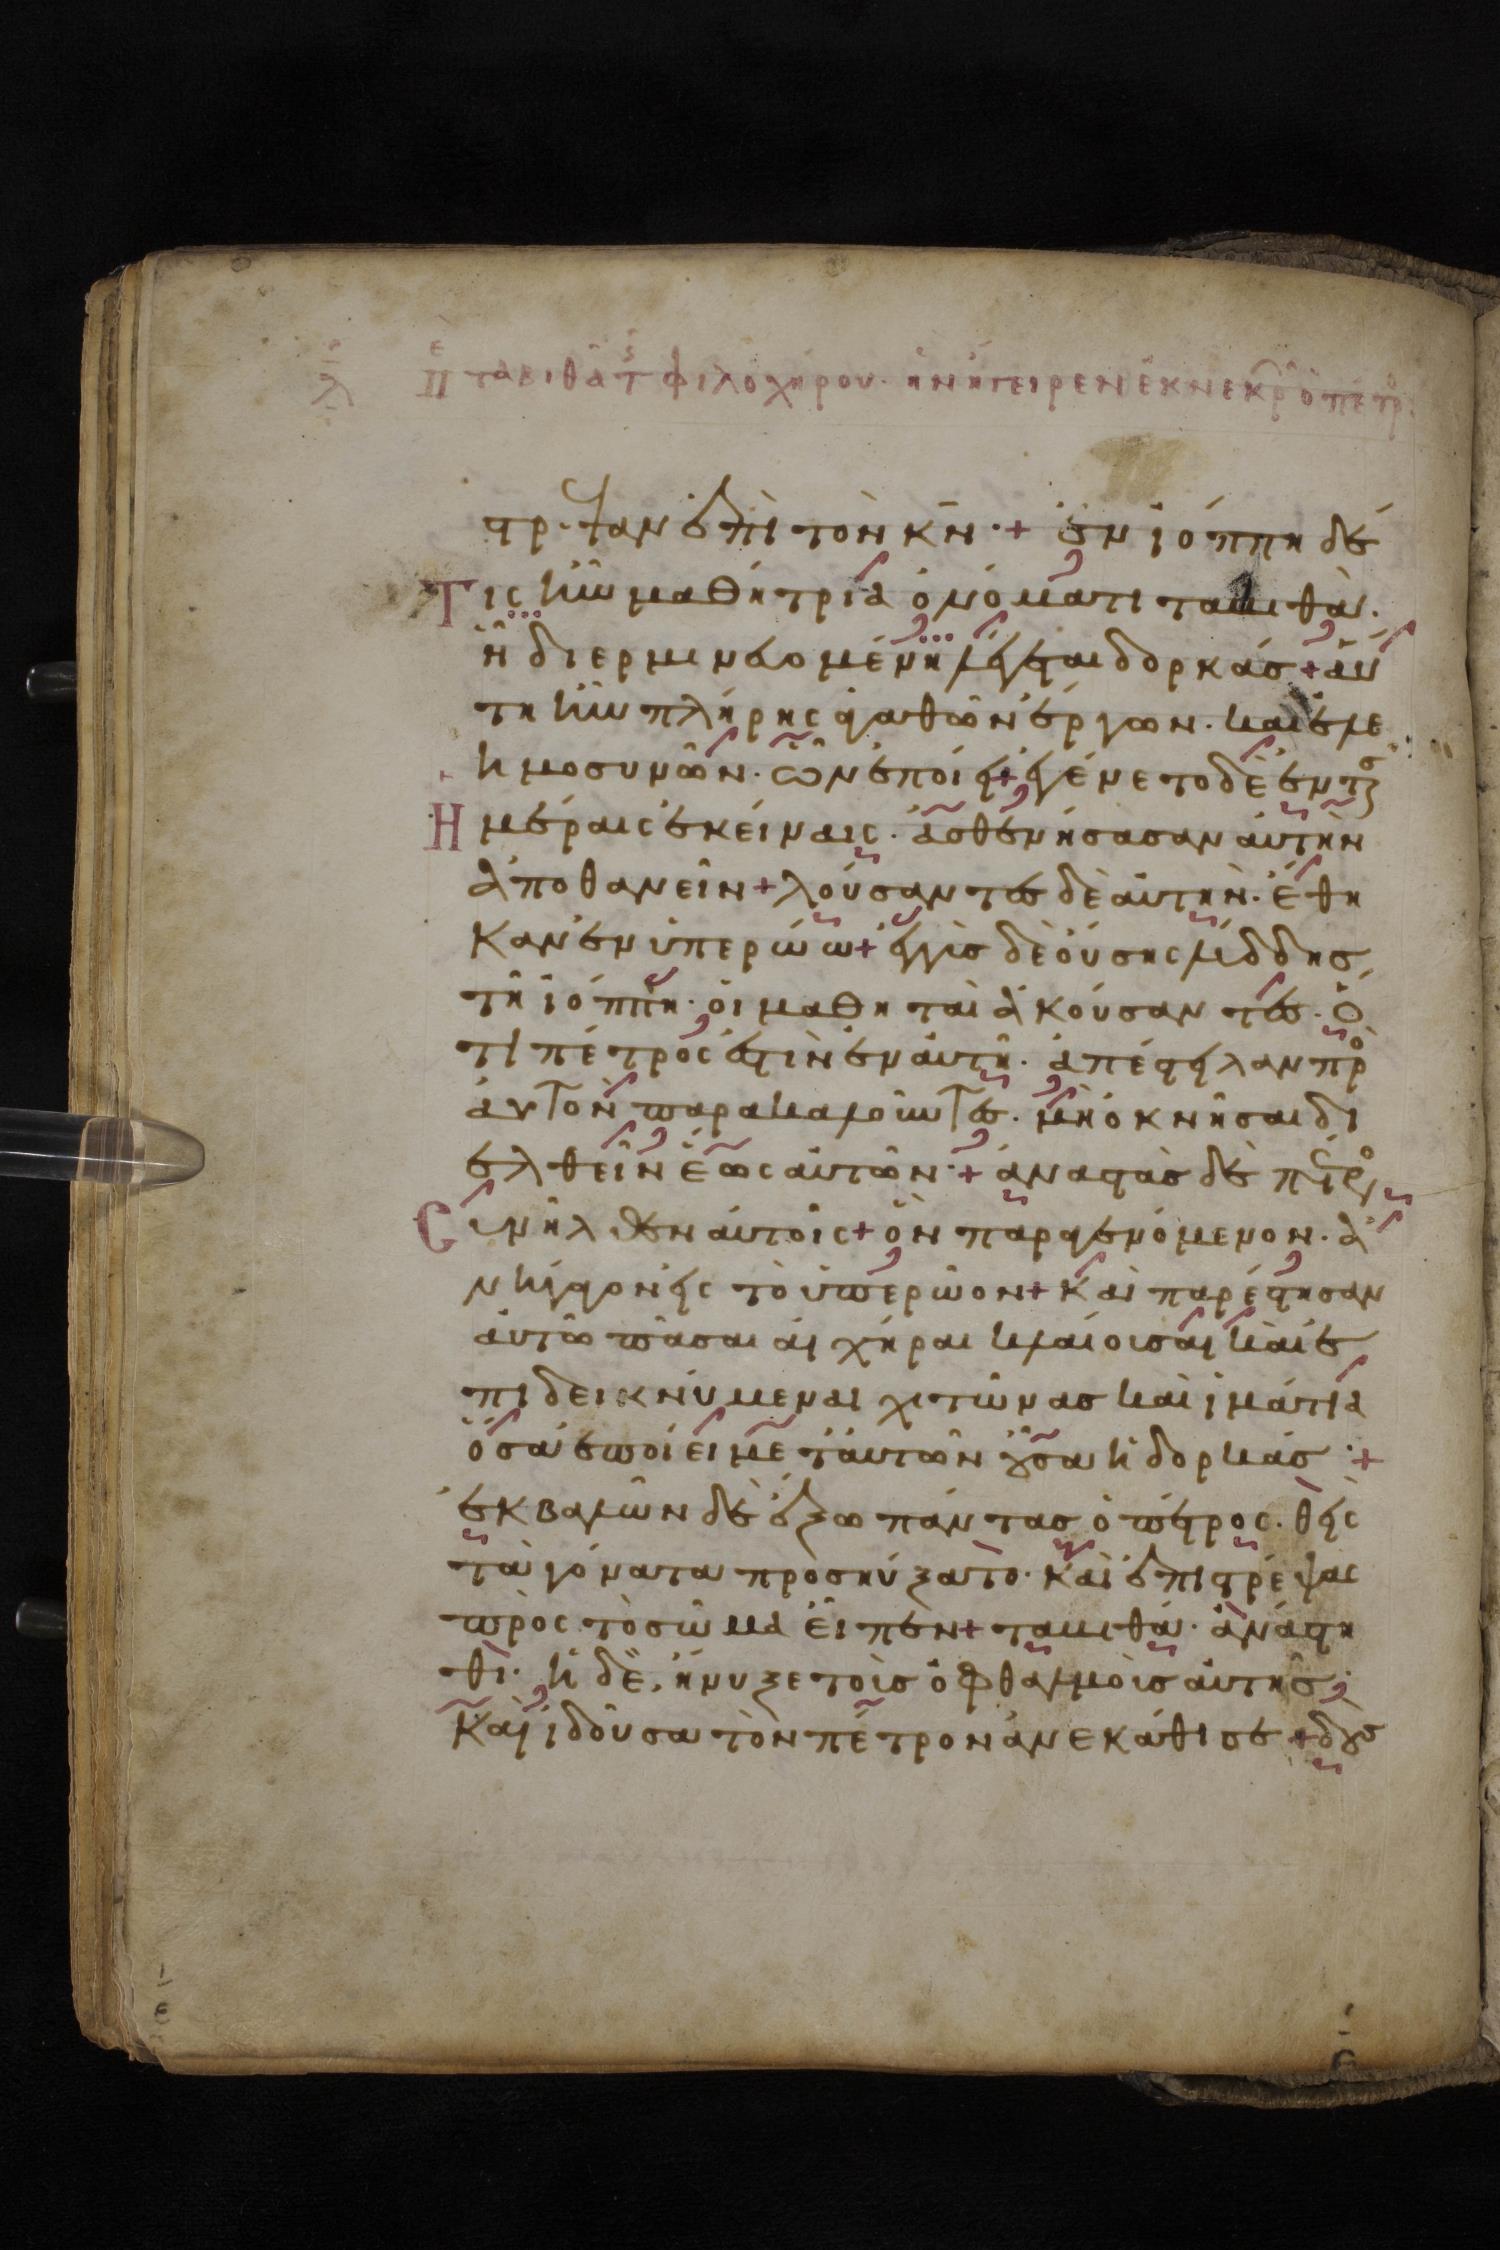 λ Πε ταβιθὰ τς φιλοχήρου· ἣν ἤγειρεν ἐκ νεκρ ὁ πέτρ
στρεψαν ἐπὶ τὸν κν· + ἐν ἰόππη δέ
τις ἦν μαθήτρια ὀνόματι ταβιθά·
ἣ διερμινευομένη λέγεται δορκάσ + αὕ
τη ἦν πλήρης ἀγαθῶν ἔργων· καὶ ἐλε
ημοσυνῶν· ὧν ἐποίει + ἐγένετο δὲ ἐν τς
ἡμέραις ἐκείναις· ἀσθενήσασαν αὐτὴν
ἀποθανεῖν + λούσαντες δὲ αὐτὴν· ἔθη
καν ἐν ὑπερώω + ἐγγὺσ δὲ οὔσης λίδδησ,
τῆ ἰόππη· οἱ μαθηταὶ ἀκούσαντες· ὅ
τι πέτρος ἐστὶν ἐν αὐτῆ· ἀπέστειλαν πρὸ
αὐτὸν παρακαλοῦντες· μὴ ὀκνῆσαι δι
ελθεῖν ἕως αὐτῶν· + ἀναστὰσ δὲ πέτρο
συνῆλθεν αὐτοῖς + ὃν παραγενόμενον· ἀ
νήγαγον εἰς τὸ ὑπερῶον + καὶ παρέστησαν
αὐτῶ πᾶσαι αἱ χῆραι κλαίουσαι καὶ ἐ
πιδεικνύμεναι χιτῶνασ καὶ ἱμάτια
ὅσα ἐποίει με τ αὐτῶν οὖσα ἡ δορκάσ· +
ἐκβαλὼν δὲ ἔξω πάντασ ὁ πέτρος· θεὶς
τὰ γόνατα προσηύξατο· καὶ ἐπιστρέψας
πρὸς τὸ σῶμα εἶπεν + ταβιθά· ἀνάστη
θι· ἡ δὲ, ἤνυξε τοὺσ ὀφθαλμοὺσ αὐτῆσ·
καὶ ἰδοῦσα τὸν πέτρον ἀνεκάθισε + δοὺσ